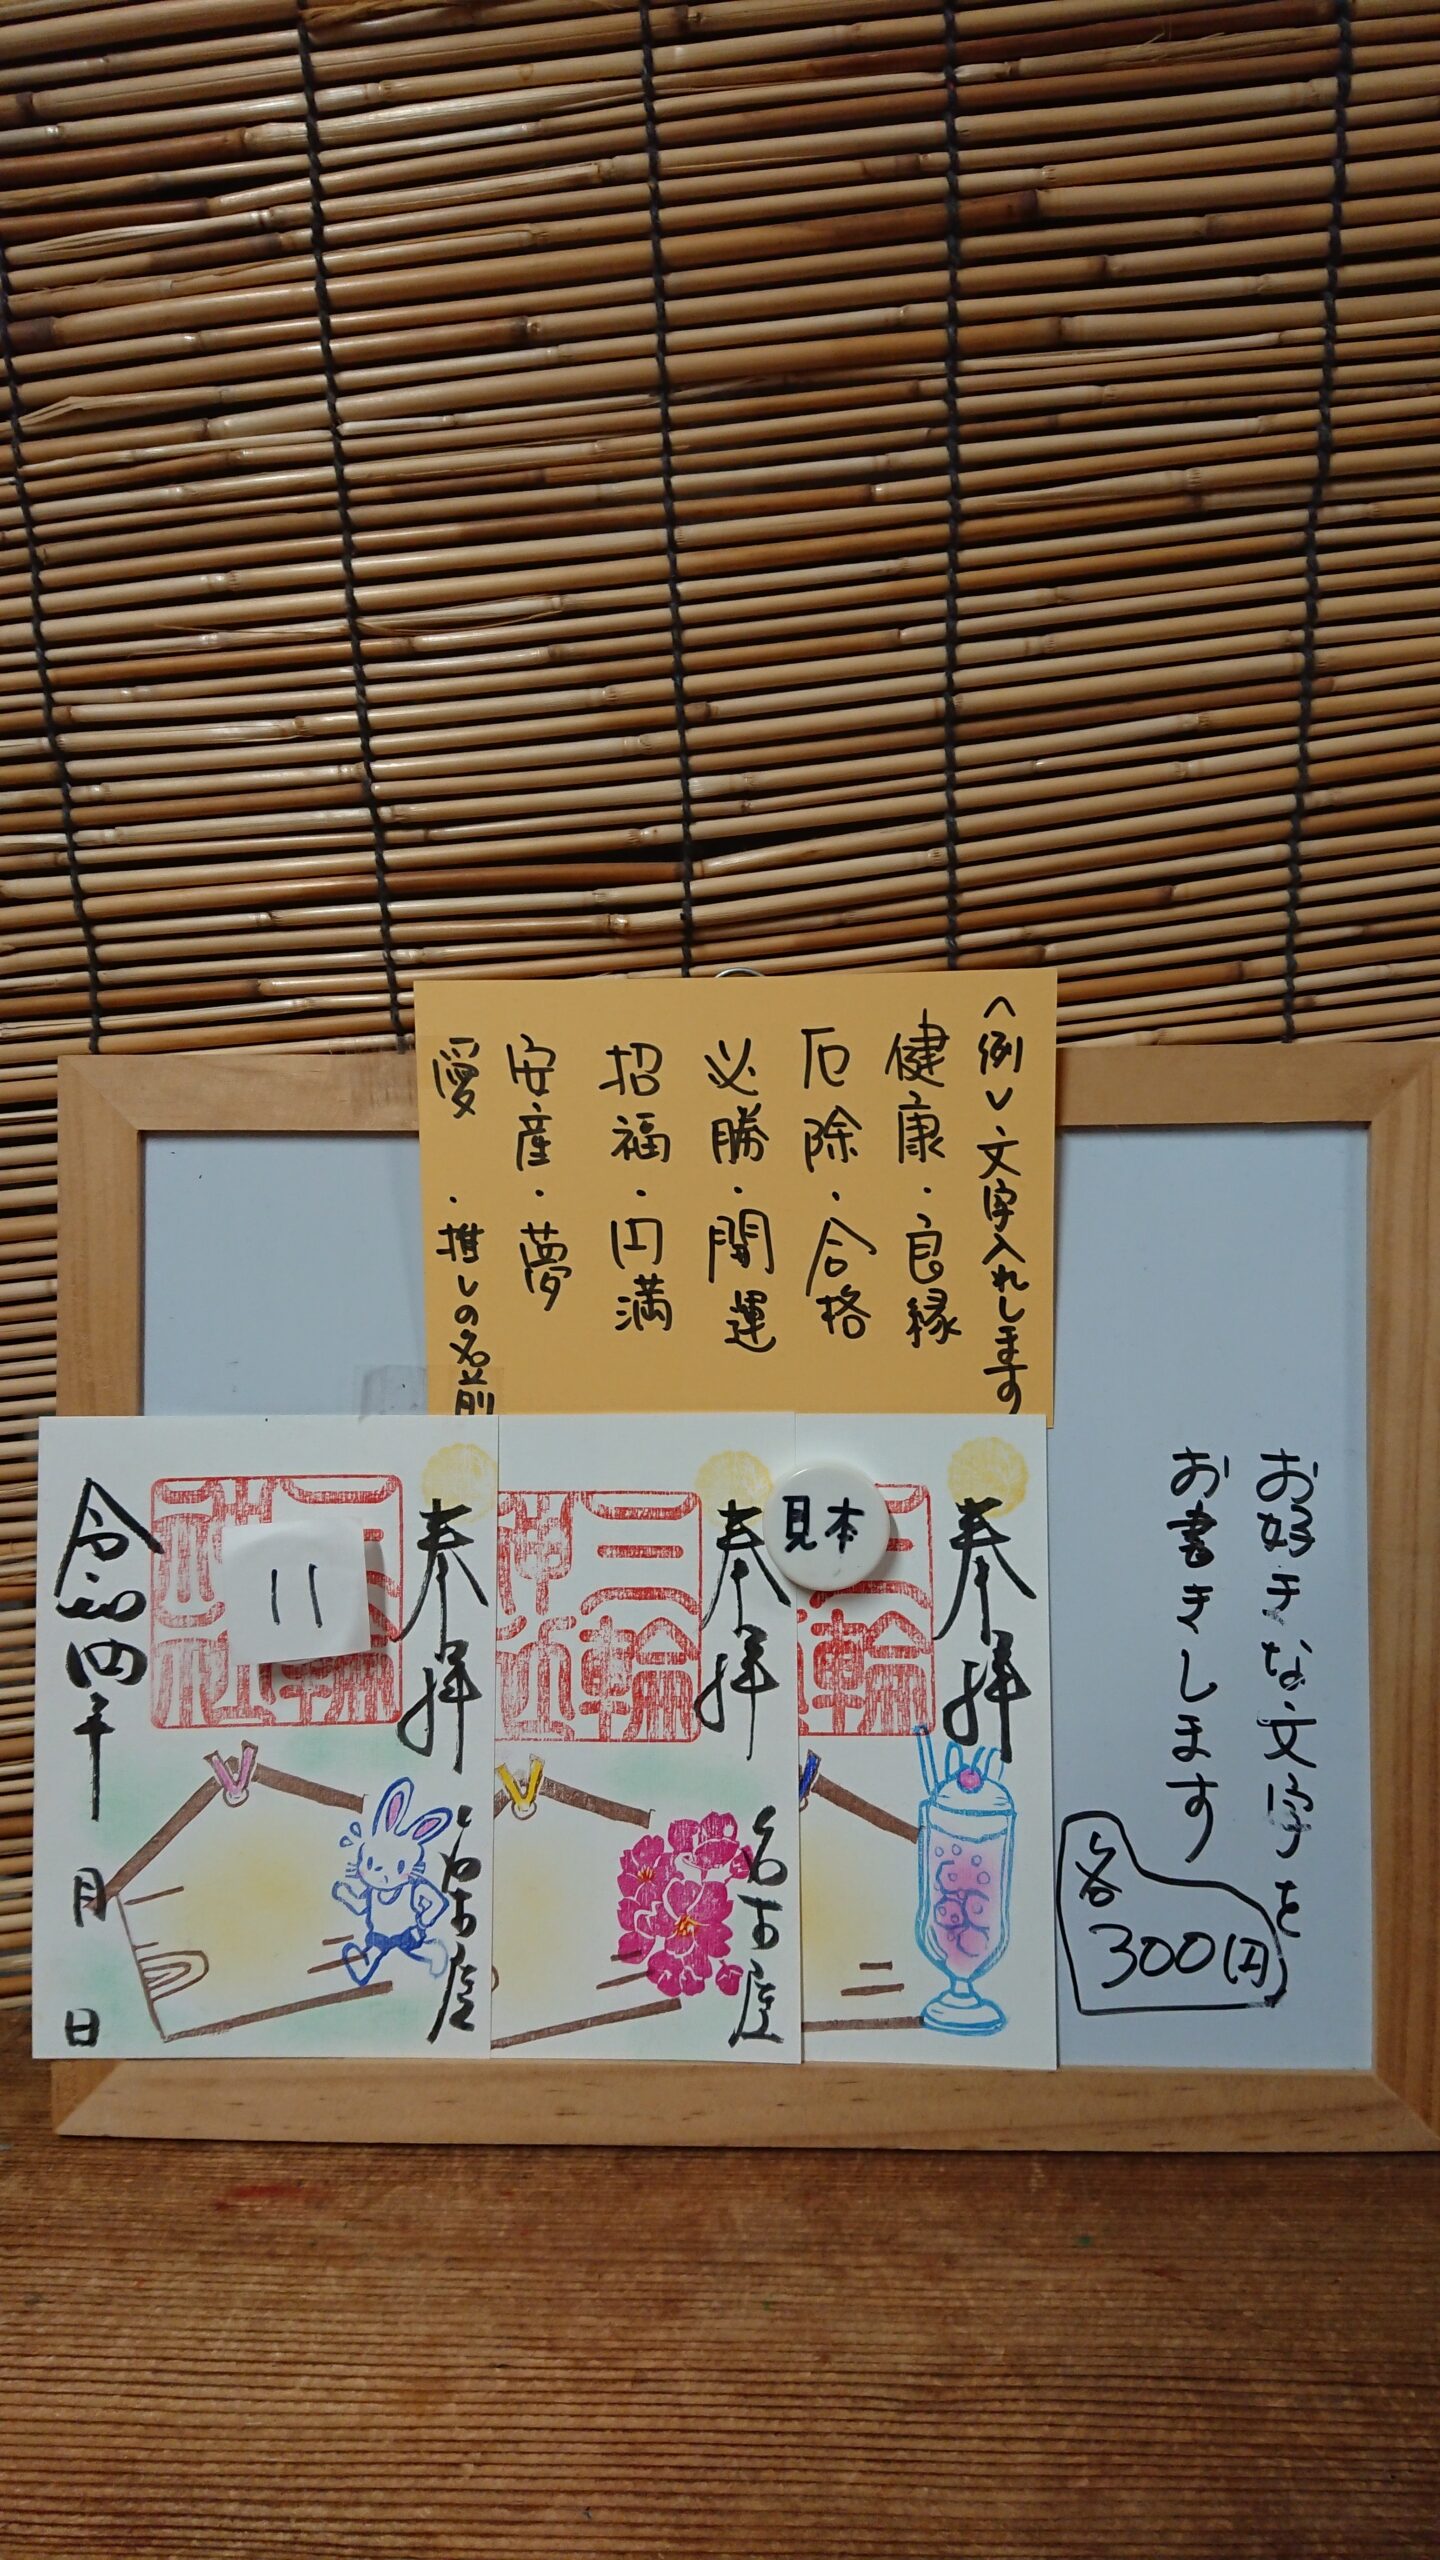 〈例〉文字入れします
健康・良縁
厄除・合格
必勝・開運
招福・円満
安産・夢
愛・推しの名前
お好きな文字を
お書きします
各
300円
見本
奉拝
三輪
奉拝
三輪
名古屋
奉拝
名古屋
11
令和四年
月
日